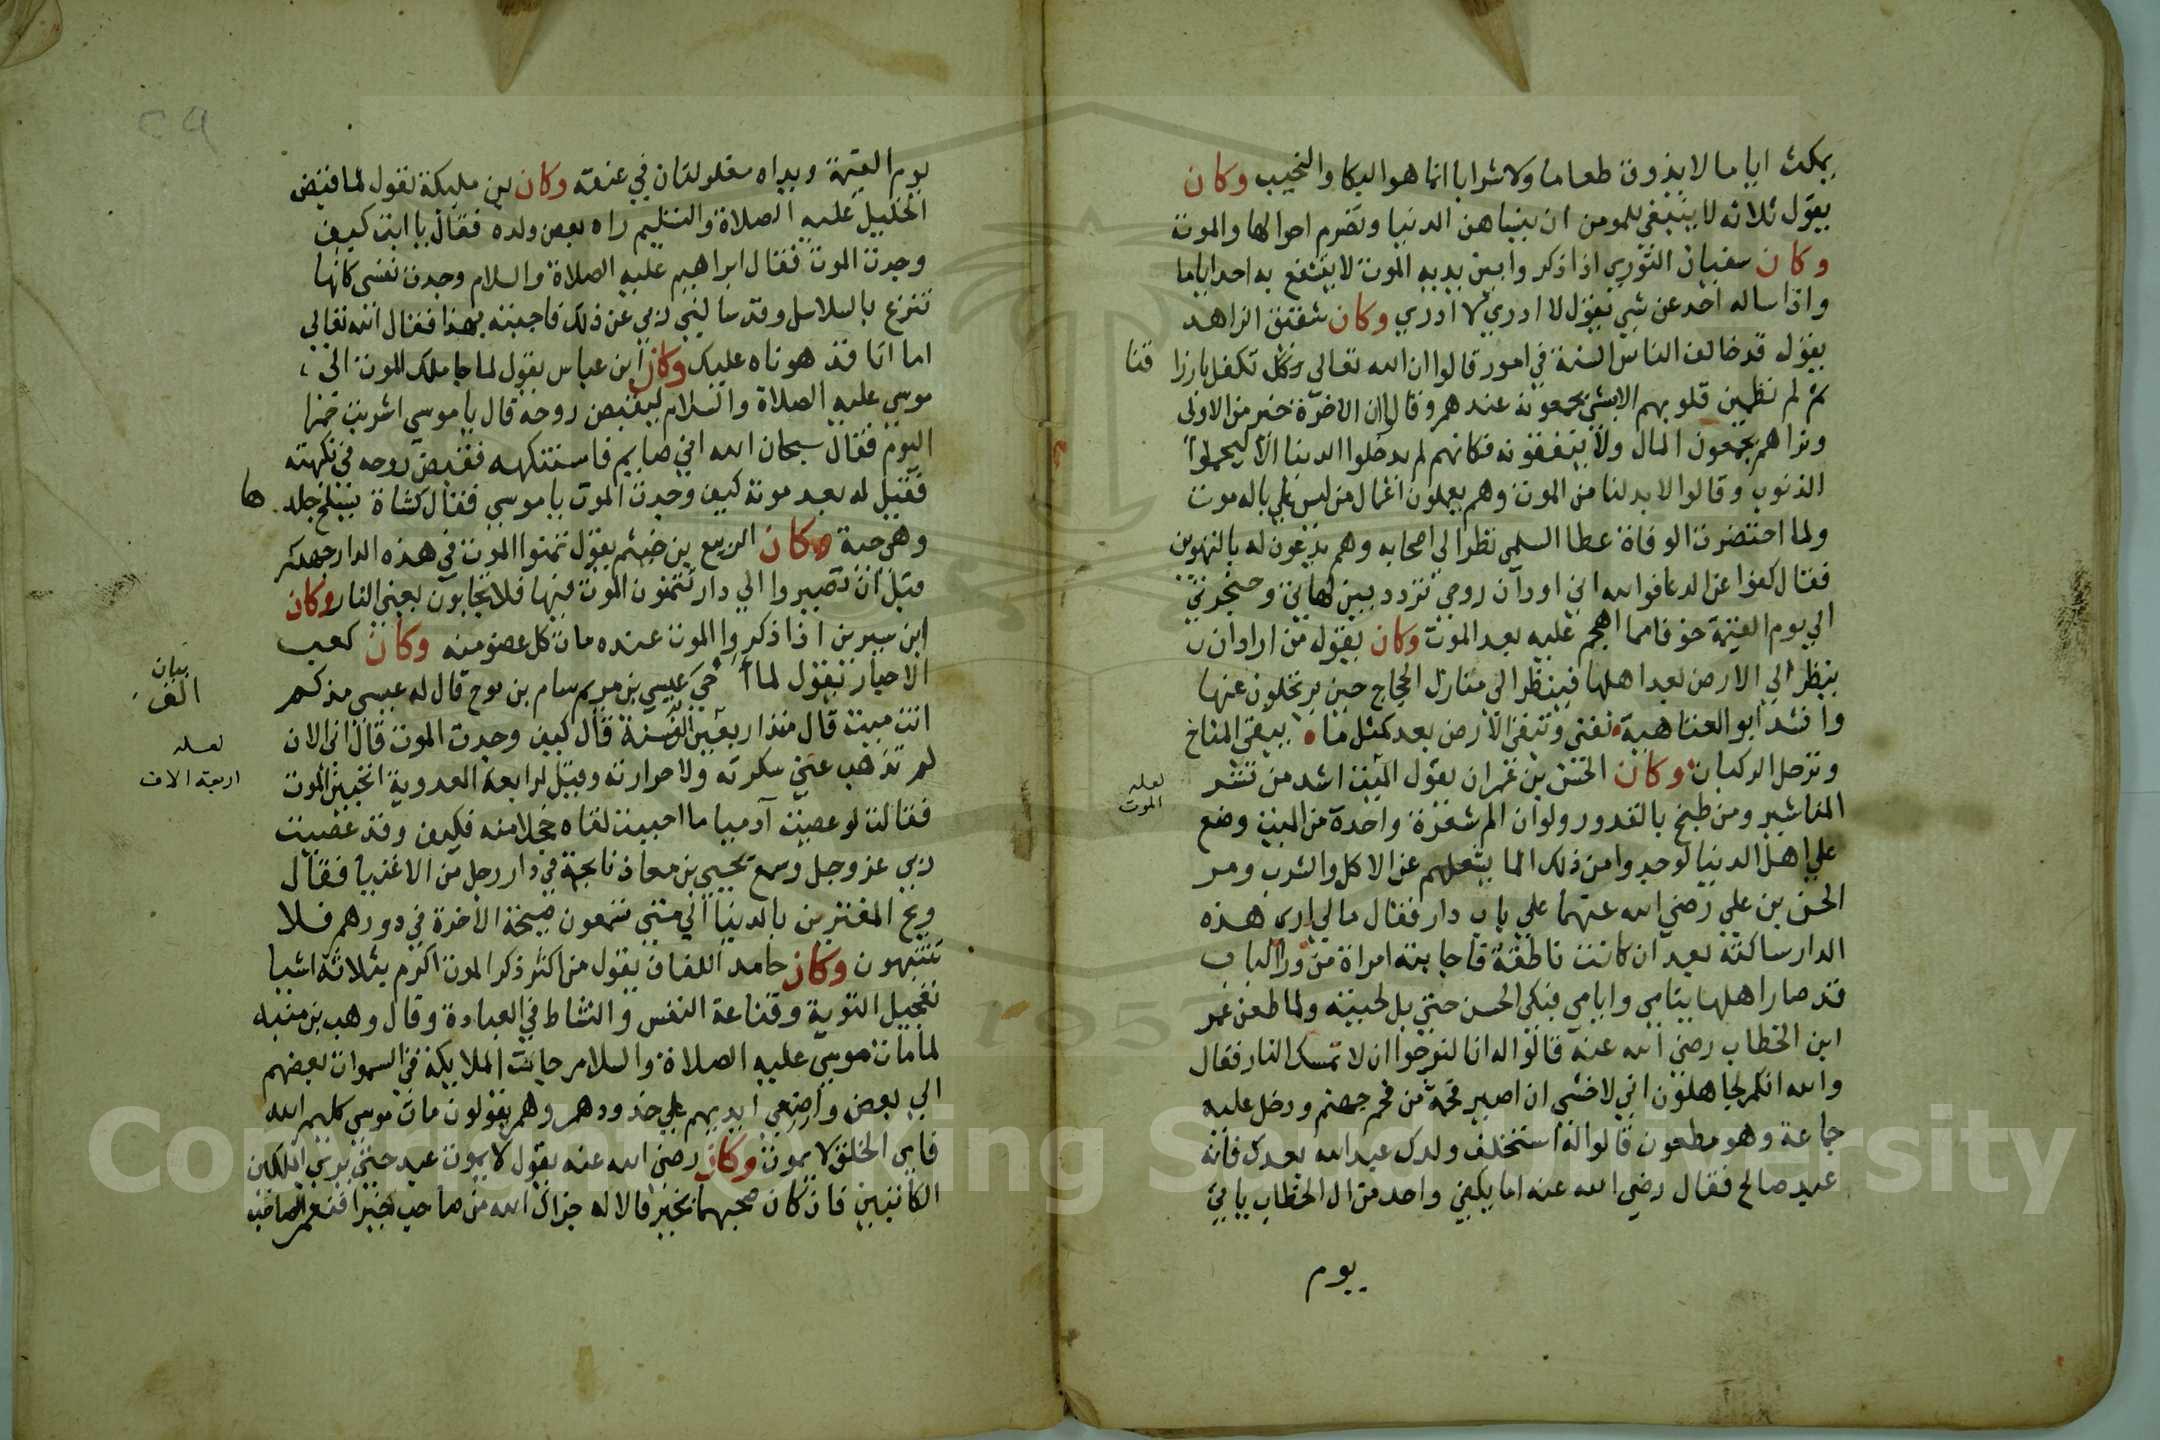 يمكث اياما لا يذوق طعاما ولا شرابا انما هو البكا والنحيب وكان
يقول ثلاثه لا ينبغي للمومن ان ينساهن الدنيا وتصرم احوالها والموت
وكان سفيان الثوري اذا ذكروا بين يديه الموت لا ينتفع به احد اياما
واذا ساله احد عن شي يقول لا ادري لا ادري وكان شقيق الزاهد
يقول قد خالف الناس السنة في امور قالوا ان الله تعالى تكفل بارزاقنا
ثم لم تطمين قلوبهم الا بشي يجمعونه عندهم وقالوا ان الاخرة خير من الاولى
وتراهم يجمعون المال ولا ينفقونه فكانهم لم يدخلوا الدنيا الا ليحملوا
الذنوب وقالوا لا بد لنا من الموت وهم يعملون اعمال من ليس على باله موت
ولما احتضرت الوفاة عطا السلمي نظر الى اصحابه وهم يدعون له بالتهوين
فقال كفوا عن الدعا فوالله اني اود ان روحي تردد بين لهاتي وحنجرتي
الى يوم القيمة خوفا مما اهجم عليه بعد الموت وكان يقول من اراد ان
ينظر الى الارض بعد اهلها فينظر الى منازل الحجاج حين يرتحلون عنها
وانشد ابو العتاهية نفنى وتبقى الارض بعد كمثل ما يبقى المناخ
وترحل الركبان وكان بن عمران يقول الميت اشد من نشر
المناشير ومن طبخ بالقدور ولو ان الم شعرة واحدة من الميت وضع
على اهل الدنيا لوجدوا من ذلك الما يشغلهم عن الاكل والشرب ومر
الحسن بن علي رضي الله عنهما على باب دار فقال مالي ارى هذه
الدار ساكتة بعد ان كانت ناطقة فاجابته امراة من ورا الباب
قد صار اهلها يتامى وايامي فبكى الحسن حتى بل لحيته ولما طعن عمر
ابن الخطاب رضي الله عنه قالوا له انا لنرجوا ان لا تمسك النار فقال
والله انكم لجاهلون اني لاخشى ان اصير فحمة من فحم جهنم ودخل عليه
جاعة وهو مطعون قالوا له استخلف ولدك عبد الله بعدك فانه
عبد صالح فقال رضي الله عنه اما يكفي واحد من ال الخطاب ياتي
يوم
لعله
الموت
يوم القيمة ويداه مغلولتان في عنقه وكان بن مليكة يقول لما قبض
الخليل عليه الصلاة والتسليم راه بعض ولده فقال يا ابت كيف
وجدت الموت فقال ابراهيم عليه الصلاة والسلام وجدت نفسي كانها
تنزع بالسلاسل وقد سالني ربي عن ذلك فاجبته بهذا فقال الله تعالى
اما انا قد هوناه عليك وكان ابن عباس يقول لما جا ملك الموت الى
موسى عليه الصلاة والسلام ليقبض روحه قال يا موسى اشربت خمرا
اليوم فقال سبحان الله اني صايم فاستنكهه فقبض روحه في نكهته
فقيل له بعد موته كيف وجدت الموت يا موسى فقال كشاة يسلخ جلدها
وهي حية وكان الربيع بن خيثم يقول تمنوا الموت في هذه الدار جهدكم
قبل ان تصيروا الى دار تتمنون الموت فيها فلا تجابون يعني النار وكان
ابن سيرين اذا ذكروا الموت عنده مات كل عضو منه وكان كعب
الاحبار يقول لما احيى عيسى بن مريم سام بن نوح قال له عيسى مذ كم
انت ميت قال منذ اربعين الف سنة قال كيف وجدت الموت قال اني الان
لم تذهب عني سكرته ولا حرارته وقيل لرابعة العدوية اتحبين الموت
فقالت لو عصيت آدميا ما احببت لقاه خجلا منه فكيف وقد عصيت
ربي عز وجل وسمع يحيى بن معاذ نايحة في دار رجل من الاغنيا فقال
ويح المغترين بالدنيا الى متى يسمعون صيحة الاخرة في دورهم فلا
ينتبهون وكان حامد اللفاف يقول من اكثر ذكر الموت اكرم بثلاثة اشيا
تعجيل التوبة وقناعة النفس والنشاط في العبادة وقال وهب بن منبه
لما مات موسى عليه الصلاة والسلام جالت الملايكة في السموات بعضهم
الى بعض واضعي ايديهم على خدودهم وهم يقولون مات موسى كليم الله
فاي الخلق لا يموت وكان رضي الله عنه يقول لا يموت عبد حتى يرى الملكين
الكاتبين فان كان صحبهما بخير قالا له جزاك الله من صاحب خيرا فنعم الصاحب
بيان
الف
لعله
اربعة الاف